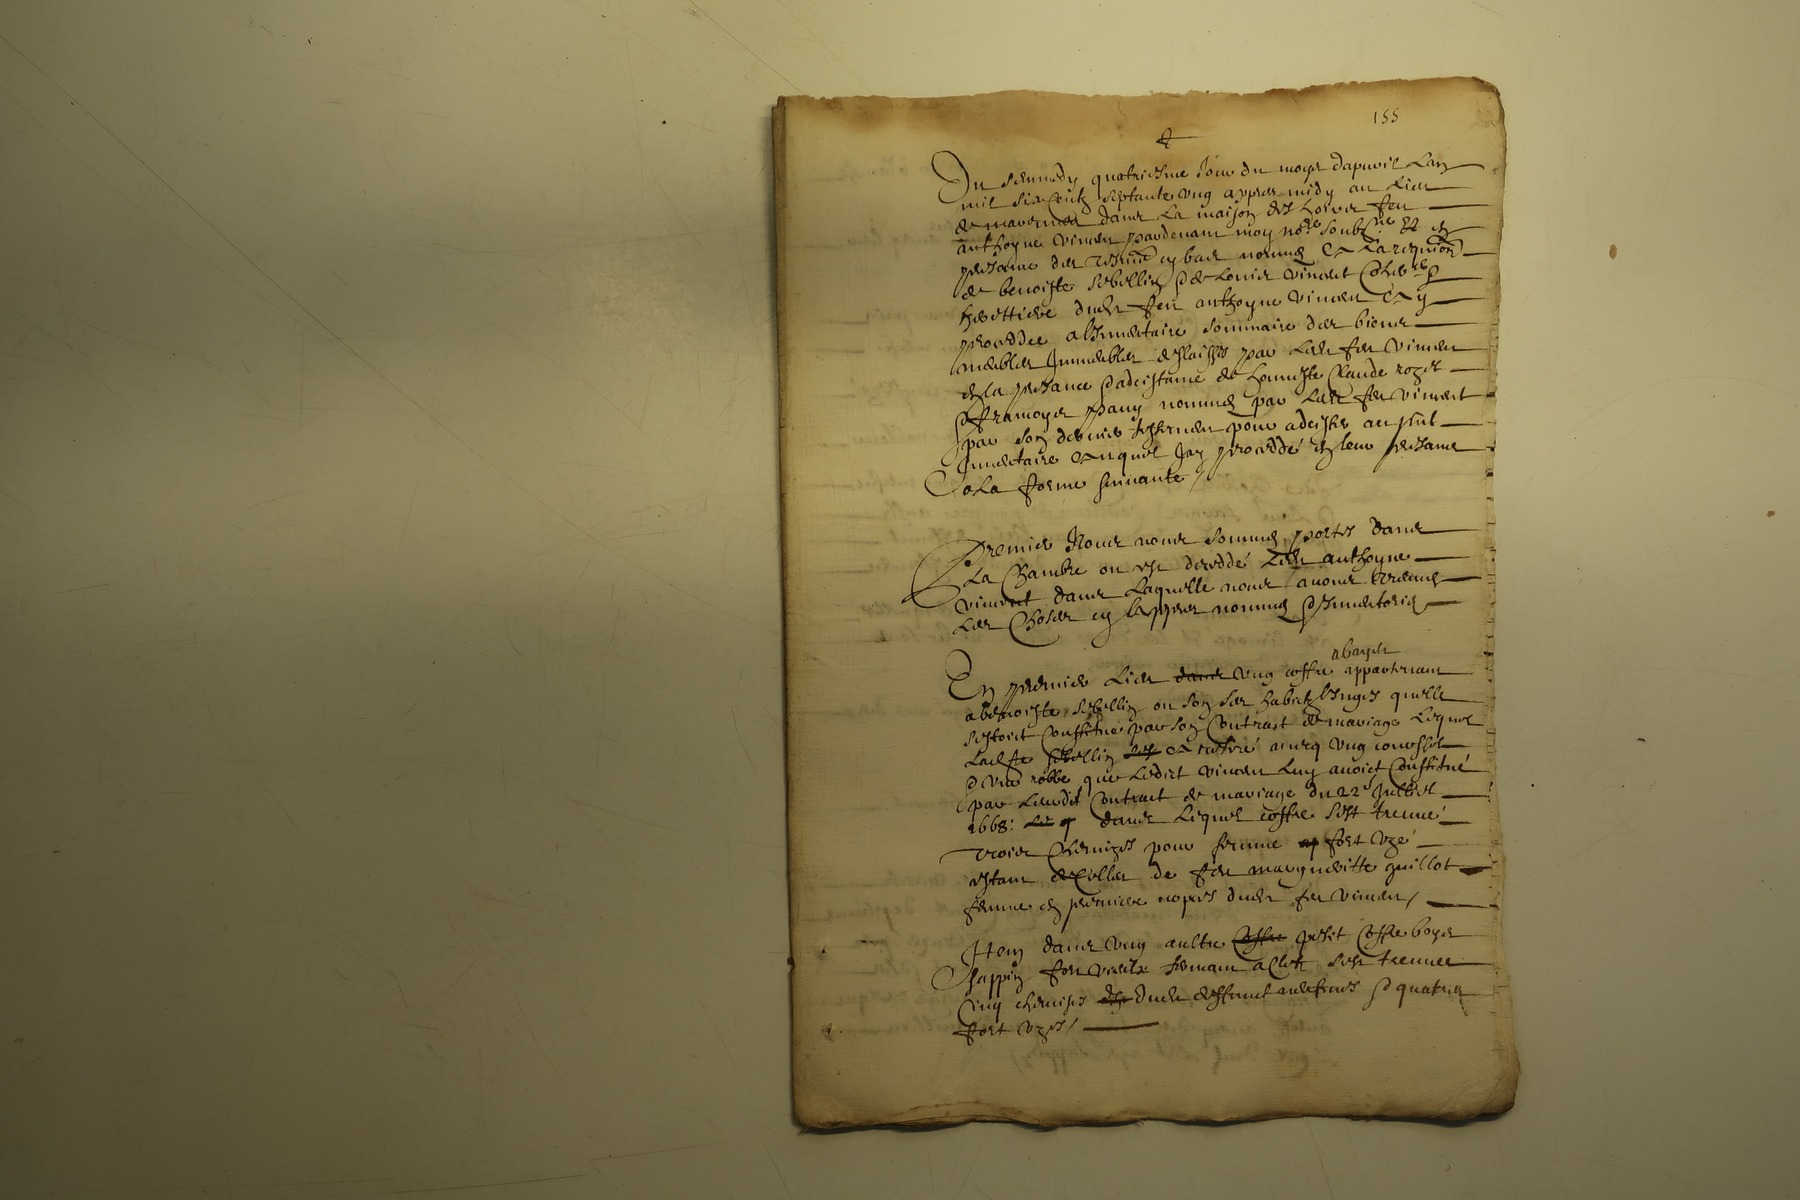 155
Du sammedy quatriesme Jour du moys dapvril Lan
mil six centz septante ung appres midy au Lieu
de dans La maison des hoirs feu
anthoyne vincen pardevant moy no.re soubz.né et en
presance des tesmoins cy bas nommes Et a La requision
de benoiste sebellin de Louis vincent
herittiere dudit feu anthoyne vincen Est
procedde a linventaire sommaire des biens
meubles Immeubles delaisses par Ledit feu vincen
en la presance et adcistance de honneste Claude rozet
et francoys pany nommes par Ledit feu vincent
par son dernier testemen pour adcister au p.nt
Inventaire Auquel Jay procedde en leur presance
a La forme suivante /
Premier Nous nous sommes portes dans
La Chambre ou est decedde Ledit anthoyne
vincent dans Laquelle nous avons treuvé
Les Choses cy appres nommes et Inventories
abayer
En premier Lieu dans ung coffre appartenant
a benoiste sebellin ou son ses habitz linges quelle
sestoit Constitue par son Contract de mariage Lequel
Ladite sebellin a retiré avecq ung
et une robbe que Ledict vincen Luy avoict Constitué
par Leurdit Contract de mariage du 22 Juillet
1668: dans Lequel coffre sest treuvé
trois Chemizes pour femme fort uzé
estant de Celles de feu margueritte guillot
femme en premiere nopces dudit feu vincen /
Item dans ung aultre Coffre petit Coffre boys
sappin fort vieilx fermant a Clef sest treuvee
Cinq chemises dudit deffunct et quatres
fort uzes /